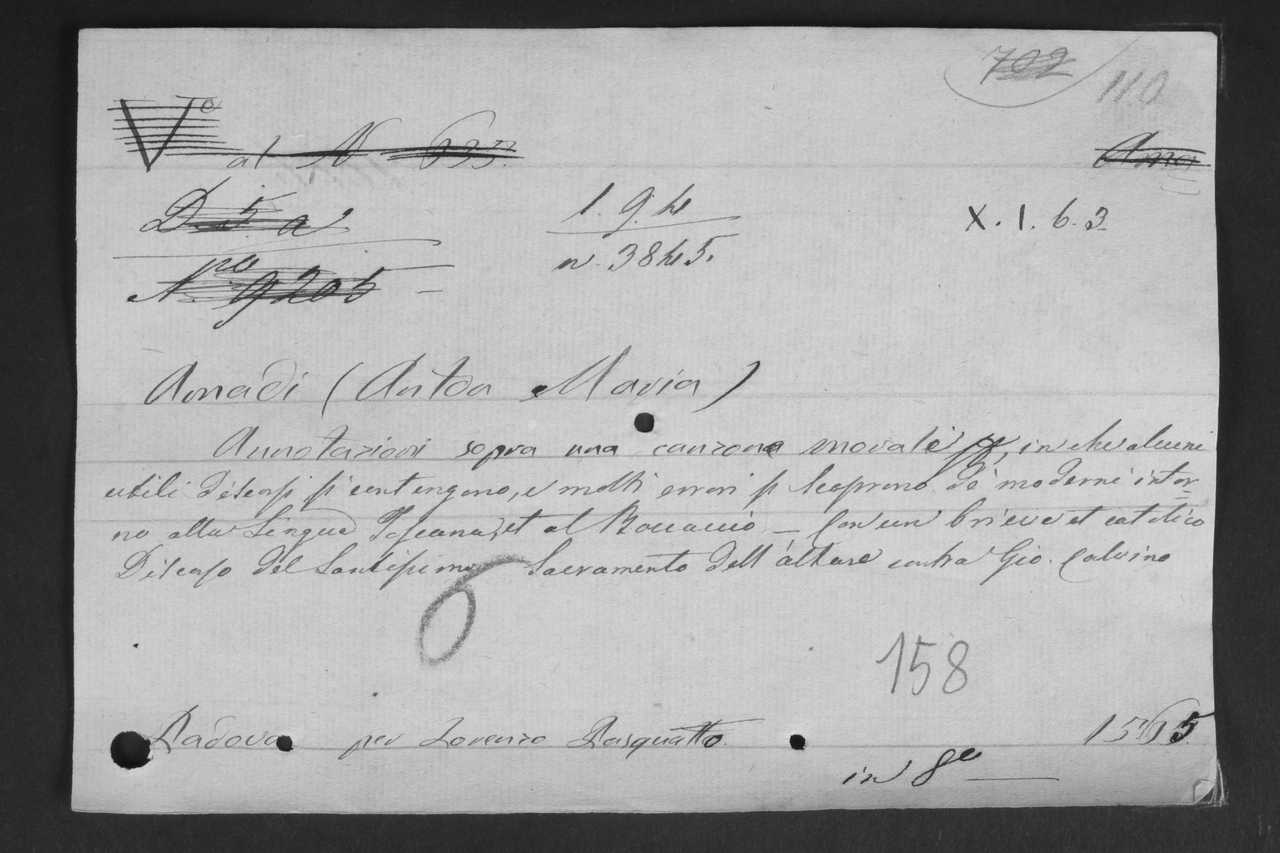 722
110
V To al N 633
Ama
D 5 a
1. 9. 4
X. 1. 6. 3
N po 9205
n. 3845.
Amadi (Anton Maria)
Annotazioni sopra una canzone morale, in che alcuni
utili discorsi si contengono, e molti errori si scoprono de moderni intor
no alla Lingua Toscana, et al Boccaccio – Con un brieve et catolico
Discorso del Santissimo Sacramento dell'altare contra Gio. Calvino
6
158
Padova per Lorenzo Pasquatto 1565
in 8o